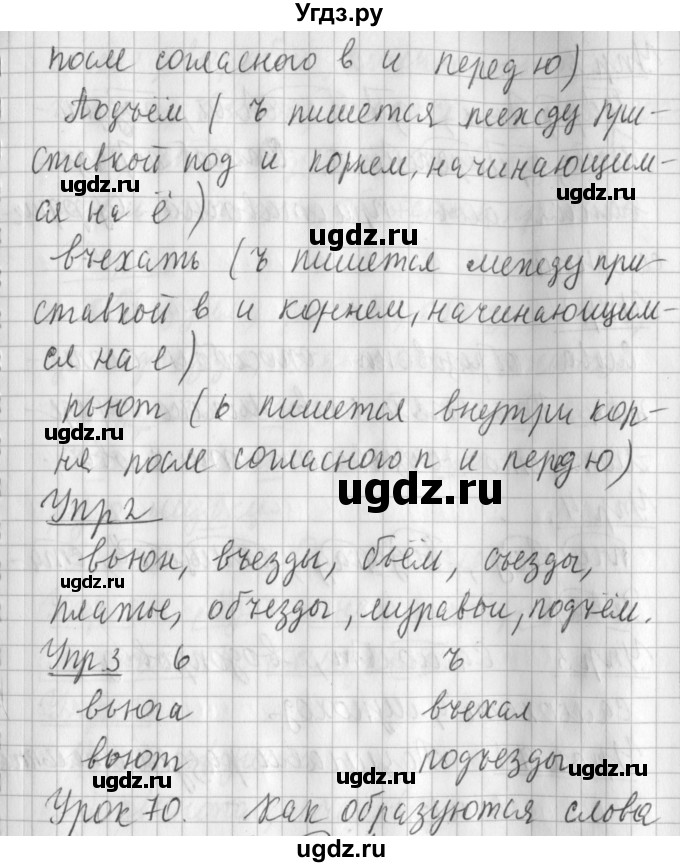 Угдз.ру
после согласного в и перед ю)
Подъём ( ъ пишется между при-
ставкой под и корнем, начинающим-
ugdz.ru ugdz.ru
ся на ё)
ugdz.ru
въехать ( ъ пишется между при-
ставкой в и корнем, начинающим-
ся на е)
пьют ( ь пишется внутри кор-
ugdz.ru ugdz.ru
не после согласного п и перед ю)
ugdz.ru
Упр 2
вьюн, въезды, бьём, съезды,
ugdz.ru
платье, объезды, муравьи, подъём.
ugdz.ru
Упр.3 ь ъ
вьюга въехал
вьют подъезды
ugdz.ru ugdz.ru ugdz.ru
Урок 70. Как образуются слова
ugdz.ru